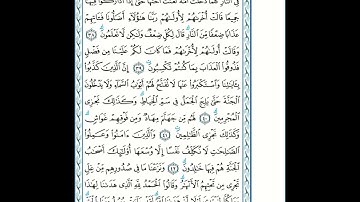 فِي ٱلنَّارِ كُلَّمَا دَخَلَتْ أُمَّةٌ لَّعَنَتْ أُخْتَهَا حَتَّىٰٓ إِذَا ٱدَّارَكُوا۟ فِيهَا
جَمِيعًا قَالَتْ أُخْرَىٰهُمْ لِأُولَىٰهُمْ رَبَّنَا هَٰٓؤُلَآءِ أَضَلُّونَا فَـَٔاتِهِمْ
عَذَابًا ضِعْفًا مِّنَ ٱلنَّارِ قَالَ لِكُلٍّ ضِعْفٌ وَلَٰكِن لَّا تَعْلَمُونَ ٣٨
وَقَالَتْ أُولَىٰهُمْ لِأُخْرَىٰهُمْ فَمَا كَانَ لَكُمْ عَلَيْنَا مِن فَضْلٍ
فَذُوقُوا۟ ٱلْعَذَابَ بِمَا كُنتُمْ تَكْسِبُونَ ٣٩ إِنَّ ٱلَّذِينَ كَذَّبُوا۟
بِـَٔايَٰتِنَا وَٱسْتَكْبَرُوا۟ عَنْهَا لَا تُفَتَّحُ لَهُمْ أَبْوَٰبُ ٱلسَّمَآءِ وَلَا يَدْخُلُونَ
ٱلْجَنَّةَ حَتَّىٰ يَلِجَ ٱلْجَمَلُ فِي سَمِّ ٱلْخِيَاطِ وَكَذَٰلِكَ نَجْزِي
ٱلْمُجْرِمِينَ ٤٠ لَهُم مِّن جَهَنَّمَ مِهَادٌ وَمِن فَوْقِهِمْ غَوَاشٍ
وَكَذَٰلِكَ نَجْزِي ٱلظَّٰلِمِينَ ٤١ وَٱلَّذِينَ ءَامَنُوا۟ وَعَمِلُوا۟
ٱلصَّٰلِحَٰتِ لَا نُكَلِّفُ نَفْسًا إِلَّا وُسْعَهَآ أُو۟لَٰٓئِكَ أَصْحَٰبُ
ٱلْجَنَّةِ هُمْ فِيهَا خَٰلِدُونَ ٤٢ وَنَزَعْنَا مَا فِي صُدُورِهِم مِّنْ غِلٍّ
تَجْرِي مِن تَحْتِهِمُ ٱلْأَنْهَٰرُ وَقَالُوا۟ ٱلْحَمْدُ لِلَّهِ ٱلَّذِي هَدَىٰنَا لِهَٰذَا